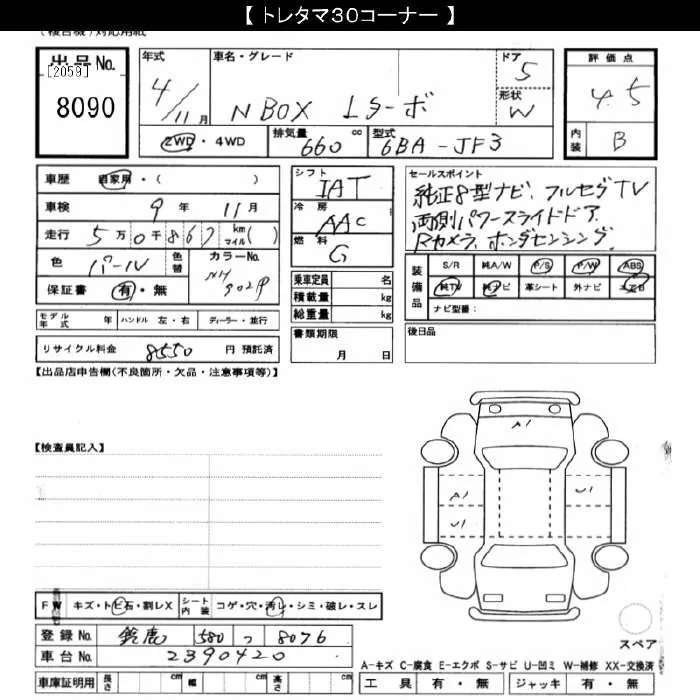 【 トレタマ30コーナー 】
(複合機)対応用紙
出品No. 年式 車名・グレード ドア 評価点
[2059]
8090
4/11月 N BOX Lターボ 5 4.5
形状 W
2WD・4WD 排気量 660 cc 型式 6BA-JF3 内装 B
車歴 自家用・( )
車検 9年 11月
走行 5万0千867 km マイル( )
色 パール 色替 カラーNo. NH
保証書 有・無
シフト IAT
冷房 AAC
燃料 G
乗車定員 名
積載量 kg
総重量 kg
セールスポイント
純正8型ナビ、フルセグTV
両側パワースライドドア、
Rカメラ、ホンダセンシング、
装備品 S/R 純A/W P/S P/W ABS
純TV 純ナビ 革シート 外ナビ エアB
ナビ型番:
モデル年式 年 ハンドル 左・右 ディーラー・並行
書類期限 月 日
後日品
リサイクル料金 8550 円 預託済
【出品店申告欄(不良箇所・欠品・注意事項等)】
【検査員記入】
A1
A1 U1
U1
FW キズ・トビ石・割レX シート内装 コゲ・穴・汚レ・シミ・破レ・スレ
登録No. 鈴鹿 580 つ 8076
車台No. 2390420
スペア
A-キズ C-腐食 E-エクボ S-サビ U-凹ミ W-補修 XX-交換済
車庫証明用 長さ cm 幅 cm 高さ cm 工具 有・無 ジャッキ 有・無